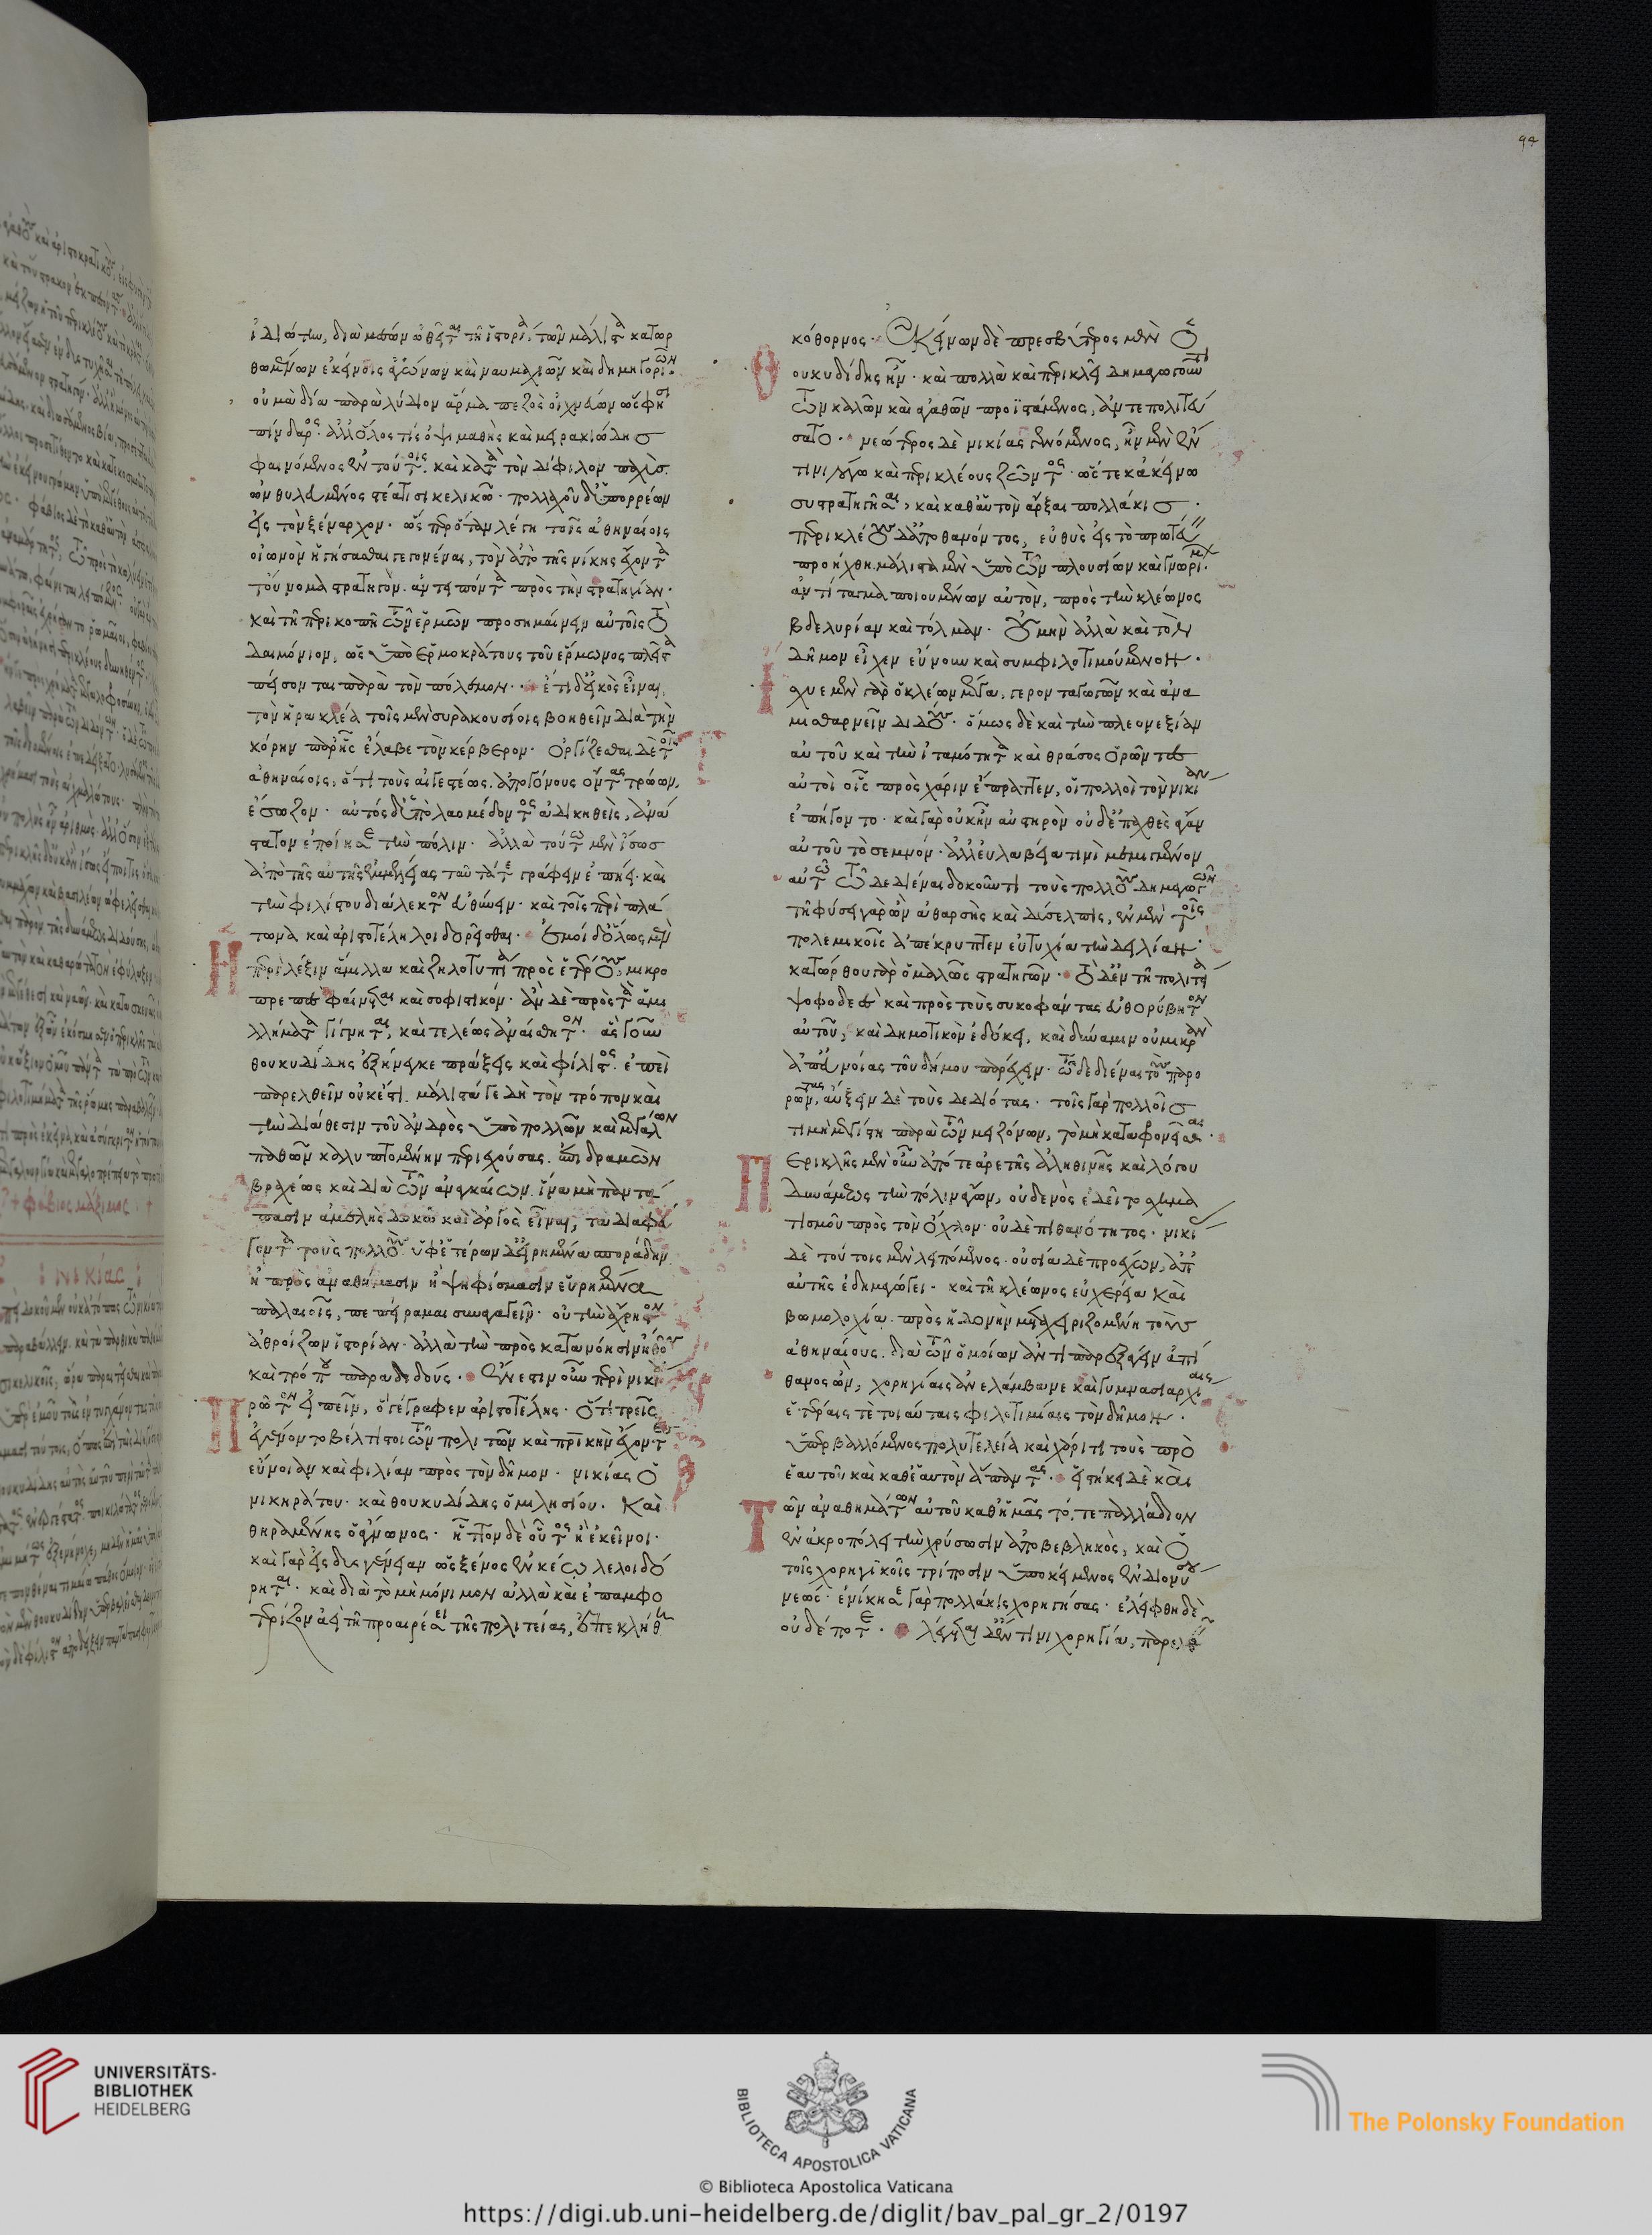 ἰδιώτην, διὰ μέσων ὠθεῖται τῆ ἱστορία, τῶν μάλιστα κατωρ
θωμένων ἐκείνοις ἀγώνων καὶ ναυμαχιῶν καὶ δημηγοριῶν·
οὐ μὰ δία παρὰ λύδιον ἅρμα πεζὸς οἰχνεύων ὥς φησι
πίνδαρος· ἀλλ' ὅλος τίς ὀψιμαθὴς καὶ μειρακιώδης
φαινόμενος ἐν τούτοις· καὶ κατὰ τὸν δίφιλον παχὺς
ὠνθυλευμένος στέατι σικελικῶ· πολλαχοῦ δ' ὑπορρέων
εἰς τὸν ξέναρχον· ὥσπερ ὅταν λέγη τοῖς ἀθηναίοις
οἰωνὸν ἡγήσασθαι γεγονέναι, τὸν ἀπὸ τῆς νίκης ἔχοντα
τοὔνομα στρατηγὸν· ἀντειπόντα πρὸς τὴν στρατηγίαν·
καὶ τῆ περικοπῆ τῶν ἑρμῶν προσημαίνειν αὐτοῖς τὸ
δαιμόνιον, ὡς ὑπὸ ἑρμοκράτους τοῦ ἕρμωνος πλεῖστα
πείσονται παρὰ τὸν πόλεμον· ἔτι δ' εἰκὸς εἶναι,
τὸν ἡρακλέα τοῖς μὲν συρακουσίοις βοηθεῖν διὰ τὴν
κόρην παρ' ἧς ἔλαβε τὸν κέρβερον· ὀργίζεσθαι δὲ τοῖς
ἀθηναίοις, ὅτι τοὺς αἰγεστέως, ἀπογόνους ὄντας τρώων,
ἔσωζον· αὐτὸς δ' ὑπὸ λαομέδοντος ἀδικηθεὶς, ἀνά
στατον ἐποίησε τὴν πόλιν· ἀλλὰ τούτω μὲν ἴσως
ἀπὸ τῆς αὐτῆς ἐμμελείας ταῦτά τε γράφειν ἐπήει· καὶ
τὴν φιλίστου διάλεκτον εὐθύνειν· καὶ τοῖς περὶ πλά
τωνα καὶ ἀριστοτέλη λοιδορεῖσθαι· ἐμοὶ δ' ὅλως μὲν
Η περὶ λέξιν ἅμιλλα καὶ ζηλοτυπία πρὸς ἑτέρους, μικρο
πρεπὲς φαίνεται καὶ σοφιστικόν· ἂν δὲ πρὸς τὰ ἀμί
λλητα γίγνηται, καὶ τελέως ἀναίσθητον· ἃς γοῦν
θουκυδίδης ἐξήνεγκε πράξεις καὶ φίλιστος· ἐπεὶ
παρελθεῖν οὐκ ἔστι, μάλιστά γε δὴ τὸν τρόπον καὶ
τὴν διάθεσιν τοῦ ἀνδρὸς ὑπὸ πολλῶν καὶ μεγάλων
παθῶν καλυπτομένην περιεχούσας· ἐπιδραμὼν
βραχέως καὶ διὰ τῶν ἀναγκαίων· ἵνα μὴ παντά
πασιν ἀμελὴς δοκῶ καὶ ἀργὸς εἶναι, τὰ διαφεύ
γοντα τοὺς πολλοὺς ὑφ' ἑτέρων δ' εἰρημένα σποράδην
ἢ πρὸς ἀναθήμασιν ἢ ψηφίσμασιν εὑρημένα
παλαιοῖς, πεπείραμαι συναγαγεῖν· οὐ τὴν ἄχρηστον
ἀθροίζων ἱστορίαν· ἀλλὰ τὴν πρὸς κατανόησιν ἤθους
καὶ τρόπου παραδιδούς· ἔνεστιν οὖν περὶ νικί
Π ρῶτον εἰπεῖν, ὃ γέγραφεν ἀριστοτέλης· ὅτι τρεῖς
ἐγένοντο βέλτιστοι τῶν πολιτῶν καὶ πατρικὴν ἔχοντες
εὔνοιαν καὶ φιλίαν πρὸς τὸν δῆμον· νικίας ὁ
νικηράτου· καὶ θουκυδίδης ὁ μιλησίου· καὶ
θηραμένης ὁ ἅγνωνος· ἧττον δὲ οὗτος ἢ ἐκεῖνοι·
καὶ γὰρ εἰς δυσγένειαν ὡς ξένος ἐν κέω λελοιδό
ρηται· καὶ διὰ τὸ μὴ μόνιμον ἀλλὰ καὶ ἐπαμφο
τερίζον ἀεὶ τῆ προαιρέσει τῆς πολιτείας, ἐπεκλήθη
κόθορνος· ἐκείνων δὲ πρεσβύτερος μὲν ὁ
Θ ουκυδίδης ἦν· καὶ πολλὰ καὶ περικλεῖ δημαγωγοῦντι
τῶν καλῶν καὶ ἀγαθῶν προϊστάμενος, ἀντεπολιτεύ
σατο· νεώτερος δὲ νικίας γενόμενος, ἦν μὲν ἔν
τινι λόγω καὶ περικλέους ζῶντος· ὥστε κἀκείνω
συστρατηγῆσαι, καὶ καθ' αὑτὸν ἄρξαι πολλάκις·
περικλέους δ' ἀποθανόντος, εὐθὺς εἰς τὸ πρωτεύ
προήχθη μάλιστα μὲν ὑπὸ τῶν πλουσίων καὶ γνωρίμων
ἀντίταγμα ποιουμένων αὐτὸν, πρὸς τὴν κλέωνος
βδελυρίαν καὶ τόλμαν· οὐ μὴν ἀλλὰ καὶ τὸν
δῆμον εἶχεν εὔνουν καὶ συμφιλοτιμούμενον·
Ι σχυε μὲν γὰρ ὁ κλέων μέγα, γερονταγωγῶν καὶ ἀνα
μισθαρνεῖν διδούς· ὅμως δὲ καὶ τὴν πλεονεξίαν
αὐτοῦ καὶ τὴν ἰταμότητα καὶ θράσος ὁρῶντες
αὐτοὶ οἷς πρὸς χάριν ἔπραττεν, οἱ πολλοὶ τὸν νικίαν
ἐπήγοντο· καὶ γὰρ οὐκ ἦν αὐστηρὸν οὐδ' ἐπαχθὲς ἄγαν
αὐτοῦ τὸ σεμνόν· ἀλλ' εὐλαβεία τινὶ μεμιγμένον
αὐτῶ τῶ δεδιέναι δοκοῦντι τοὺς πολλοὺς δημαγωγῶν
τῆ φύσει γὰρ ὢν ἀθαρσὴς καὶ δύσελπις, ἐν μὲν τοῖς
πολεμικοῖς ἀπέκρυπτεν εὐτυχία τὴν δειλίαν·
κατώρθου γὰρ ὁμαλῶς στρατηγῶν· τὸ δ' ἐν τῆ πολιτεία
ψοφοδεὲς καὶ πρὸς τοὺς συκοφάντας εὐθορύβητον
αὐτοῦ, καὶ δημοτικὸν ἐδόκει, καὶ δύναμιν οὐ μικρὰν
ἀπ' εὐνοίας τοῦ δήμου παρέχειν· τῶ δεδιέναι τοὺς ὑπερο
ρῶντας, αὔξειν δὲ τοὺς δεδιότας· τοῖς γὰρ πολλοῖς
τιμὴ μεγίστη παρὰ τῶν μειζόνων, τὸ μὴ καταφρονεῖσθαι·
Π ερικλῆς μὲν οὖν ἀπό τε ἀρετῆς ἀληθινῆς καὶ λόγου
δυνάμεως τὴν πόλιν ἄγων, οὐδενὸς ἐδεῖτο σχημα
τισμοῦ πρὸς τὸν ὄχλον· οὐδὲ πιθανότητος· νικί
δὲ τούτοις μὲν λειπόμενος· οὐσία δὲ προέχων, ἀπ'
αὐτῆς ἐδημαγώγει· καὶ τῆ κλέωνος εὐχερεία καὶ
βωμολοχία πρὸς ἡδονὴν μεταχειριζομένη τοὺς
ἀθηναίους διὰ τῶν ὁμοίων ἀντιπαρεξάγειν ἀπί
θανος ὢν, χορηγίαις ἀνελάμβανε καὶ γυμνασιαρχίαις
ἑτέραις τὲ τοιαύταις φιλοτιμίαις τὸν δῆμον·
ὑπερβαλλόμενος πολυτελεία καὶ χάριτι τοὺς πρὸ
ἑαυτοῦ καὶ καθ' ἑαυτὸν ἅπαντας· εἱστήκει δὲ καὶ
Τ ῶν ἀναθημάτων αὐτοῦ καθ' ἡμᾶς τό, τε παλλάδιον
ἐν ἀκροπόλει τὴν χρύσωσιν ἀποβεβληκὸς, καὶ ὁ
τοῖς χορηγικοῖς τρίποσιν ὑποκείμενος ἐν διονύσου
νεώς· ἐνίκησε γὰρ πολλάκις χορηγήσας· ἐλείφθη δὲ
οὐδέποτε· λέγεται δ' ἔν τινι χορηγία, παρελ
94
UNIVERSITÄTS-
BIBLIOTHEK
HEIDELBERG
BIBLIOTECA APOSTOLICA VATICANA
The Polonsky Foundation
© Biblioteca Apostolica Vaticana
https://digi.ub.uni-heidelberg.de/diglit/bav_pal_gr_2/0197